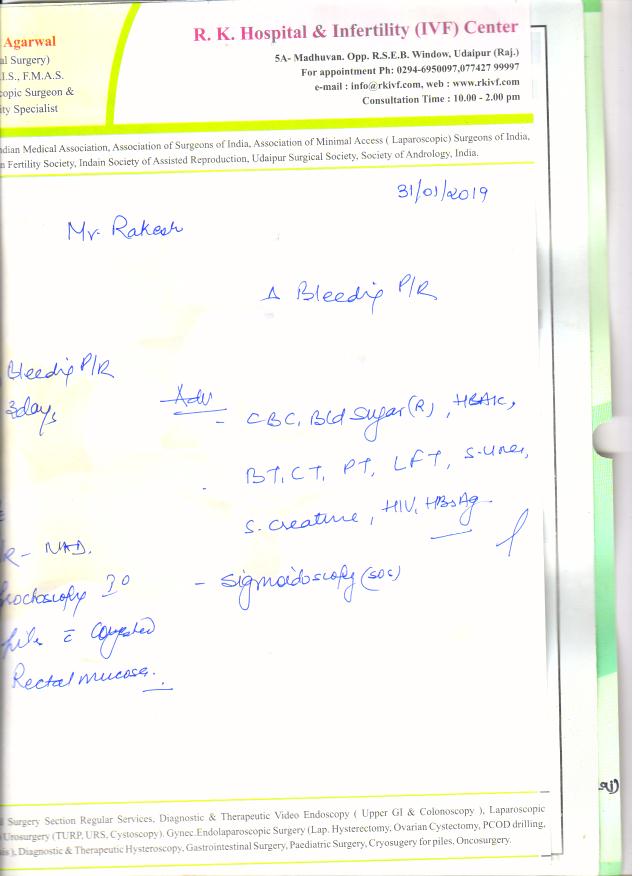 Agarwal
R. K. Hospital & Infertility (IVF) Center
al Surgery)
5A- Madhuvan. Opp. R.S.E.B. Window, Udaipur (Raj.)
.I.S., F.M.A.S.
For appointment Ph: 0294-6950097,077427 99997
copic Surgeon &
e-mail : info@rkivf.com, web : www.rkivf.com
ity Specialist
Consultation Time : 10.00 - 2.00 pm
ndian Medical Association, Association of Surgeons of India, Association of Minimal Access ( Laparoscopic) Surgeons of India,
n Fertility Society, Indain Society of Assisted Reproduction, Udaipur Surgical Society, Society of Andrology, India.
31/01/2019
Mr. Rakesh
Δ Bleeding P/R
Bleeding P/R
3days
Adv
- CBC, Bld Sugar (R), HBA1C,
BT, CT, PT, LFT, S. Urea,
S. Creatine, HIV, HBsAg
R - NAD.
Proctoscopy 3°
- Sigmoidoscopy (SOS)
pile c̄ Congested
Rectal mucosa.
l Surgery Section Regular Services, Diagnostic & Therapeutic Video Endoscopy ( Upper GI & Colonoscopy ), Laparoscopic
Urosurgery (TURP, URS, Cystoscopy). Gynec.Endolaparoscopic Surgery (Lap. Hysterectomy, Ovarian Cystectomy, PCOD drilling,
is ), Diagnostic & Therapeutic Hysteroscopy, Gastrointestinal Surgery, Paediatric Surgery, Cryosugery for piles, Oncosurgery.